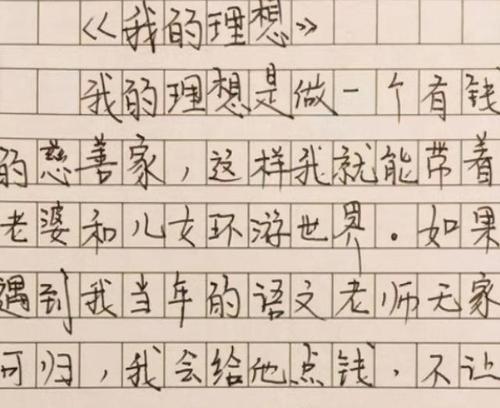 《我的理想》
我的理想是做一个有钱
的慈善家，这样我就能带着
老婆和儿女环游世界。如果
遇到我当年的语文老师无家
可归，我会给他点钱，不让